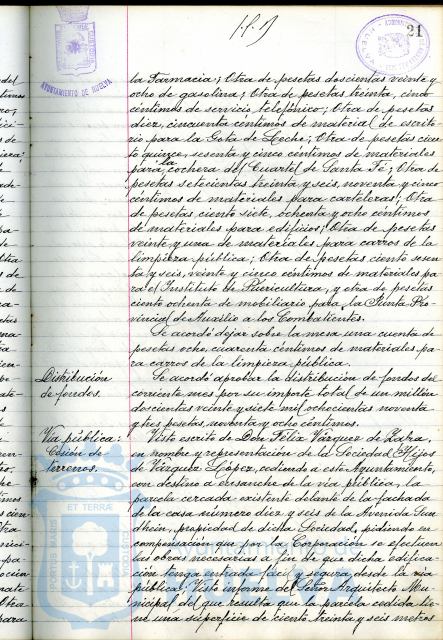 21
AYUNTAMIENTO DE HUELVA
la Farmacia; Otra de pesetas doscientas veinte y
ocho de gasolina; Otra de pesetas treinta, cinco
céntimos de servicio telefónico; Otra de pesetas
diez, cincuenta céntimos de material de escrito-
rio para la Gota de Leche; Otra de pesetas cien
to quince, sesenta y cinco céntimos de materiales
para la cochera del Cuartel de Santa Fé; Otra de
pesetas setecientas treinta y seis, noventa y cinco
céntimos de materiales para carteleras; Otra
de pesetas ciento siete, ochenta y ocho céntimos
de materiales para edificios; Otra de pesetas
veinte y una de materiales para carros de la
limpieza pública; Otra de pesetas ciento sesen
ta y seis, veinte y cinco céntimos de materiales pa
ra el Instituto de Puericultura, y otra de pesetas
ciento ochenta de mobiliario para la Junta Pro-
vincial de Auxilio a los Combatientes.
Se acordó dejar sobre la mesa una cuenta de
pesetas ocho, cuarenta céntimos de materiales pa
ra carros de la limpieza pública.
Distribución
de fondos.
Se acordó aprobar la distribución de fondos del
corriente mes por su importe total de un millón
doscientas veinte y siete mil ochocientas noventa
y tres pesetas, noventa y ocho céntimos.
Vía pública:
Cesión de
terrenos.
Visto escrito de Don Félix Vázquez de Zafra,
en nombre y representación de la Sociedad Hijos
de Vázquez López, cediendo a este Ayuntamiento,
con destino a ensanche de la vía pública, la
parcela cercada existente delante de la fachada
de la casa número diez y seis de la Avenida Sun
dheim, propiedad de dicha Sociedad, pidiendo en
compensación que por la Corporación se efectúen
las obras necesarias a fin de que dicha edifica-
ción tenga entrada fácil y segura desde la vía
pública; Visto informe del Señor Arquitecto Mu-
nicipal del que resulta que la parcela cedida tie-
ne una superficie de ciento treinta y seis metros